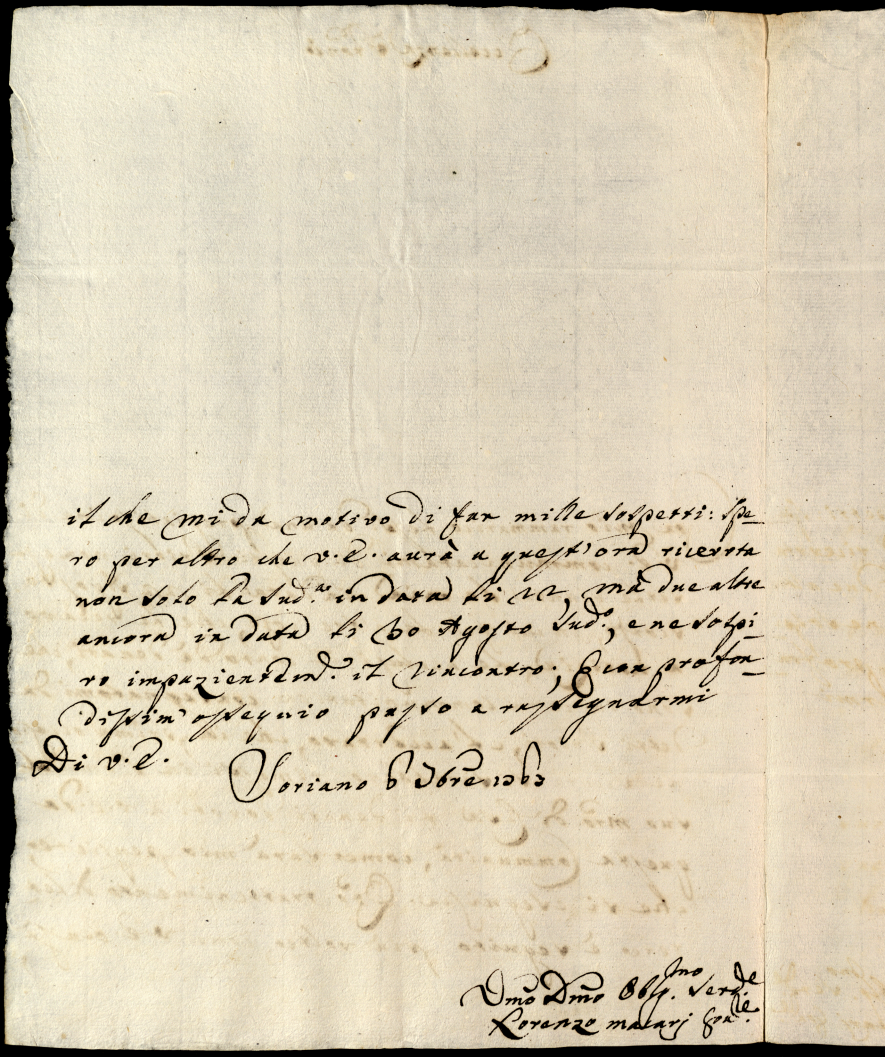 il che mi da motivo di far mille sospetti: spe=
ro per altro che V. E. aurà a quest'ora ricevuta
non solo la sud.ª in data li 22, mà due altre
ancora in data li 30 Agosto sud.º, e ne sospi=
ro impazientem.e il rincontro; E con profon=
dissim' ossequio passo a rassegnarmi
Di V. E.
Soriano 6 7bre 1763
Umo Dmo Obb.mo Ser.re
Lorenzo macarj